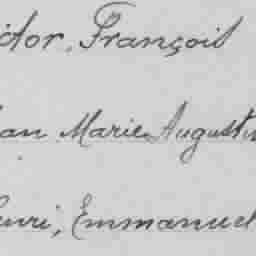 ictor, François
ean Marie Augustin
enri, Emmanuel